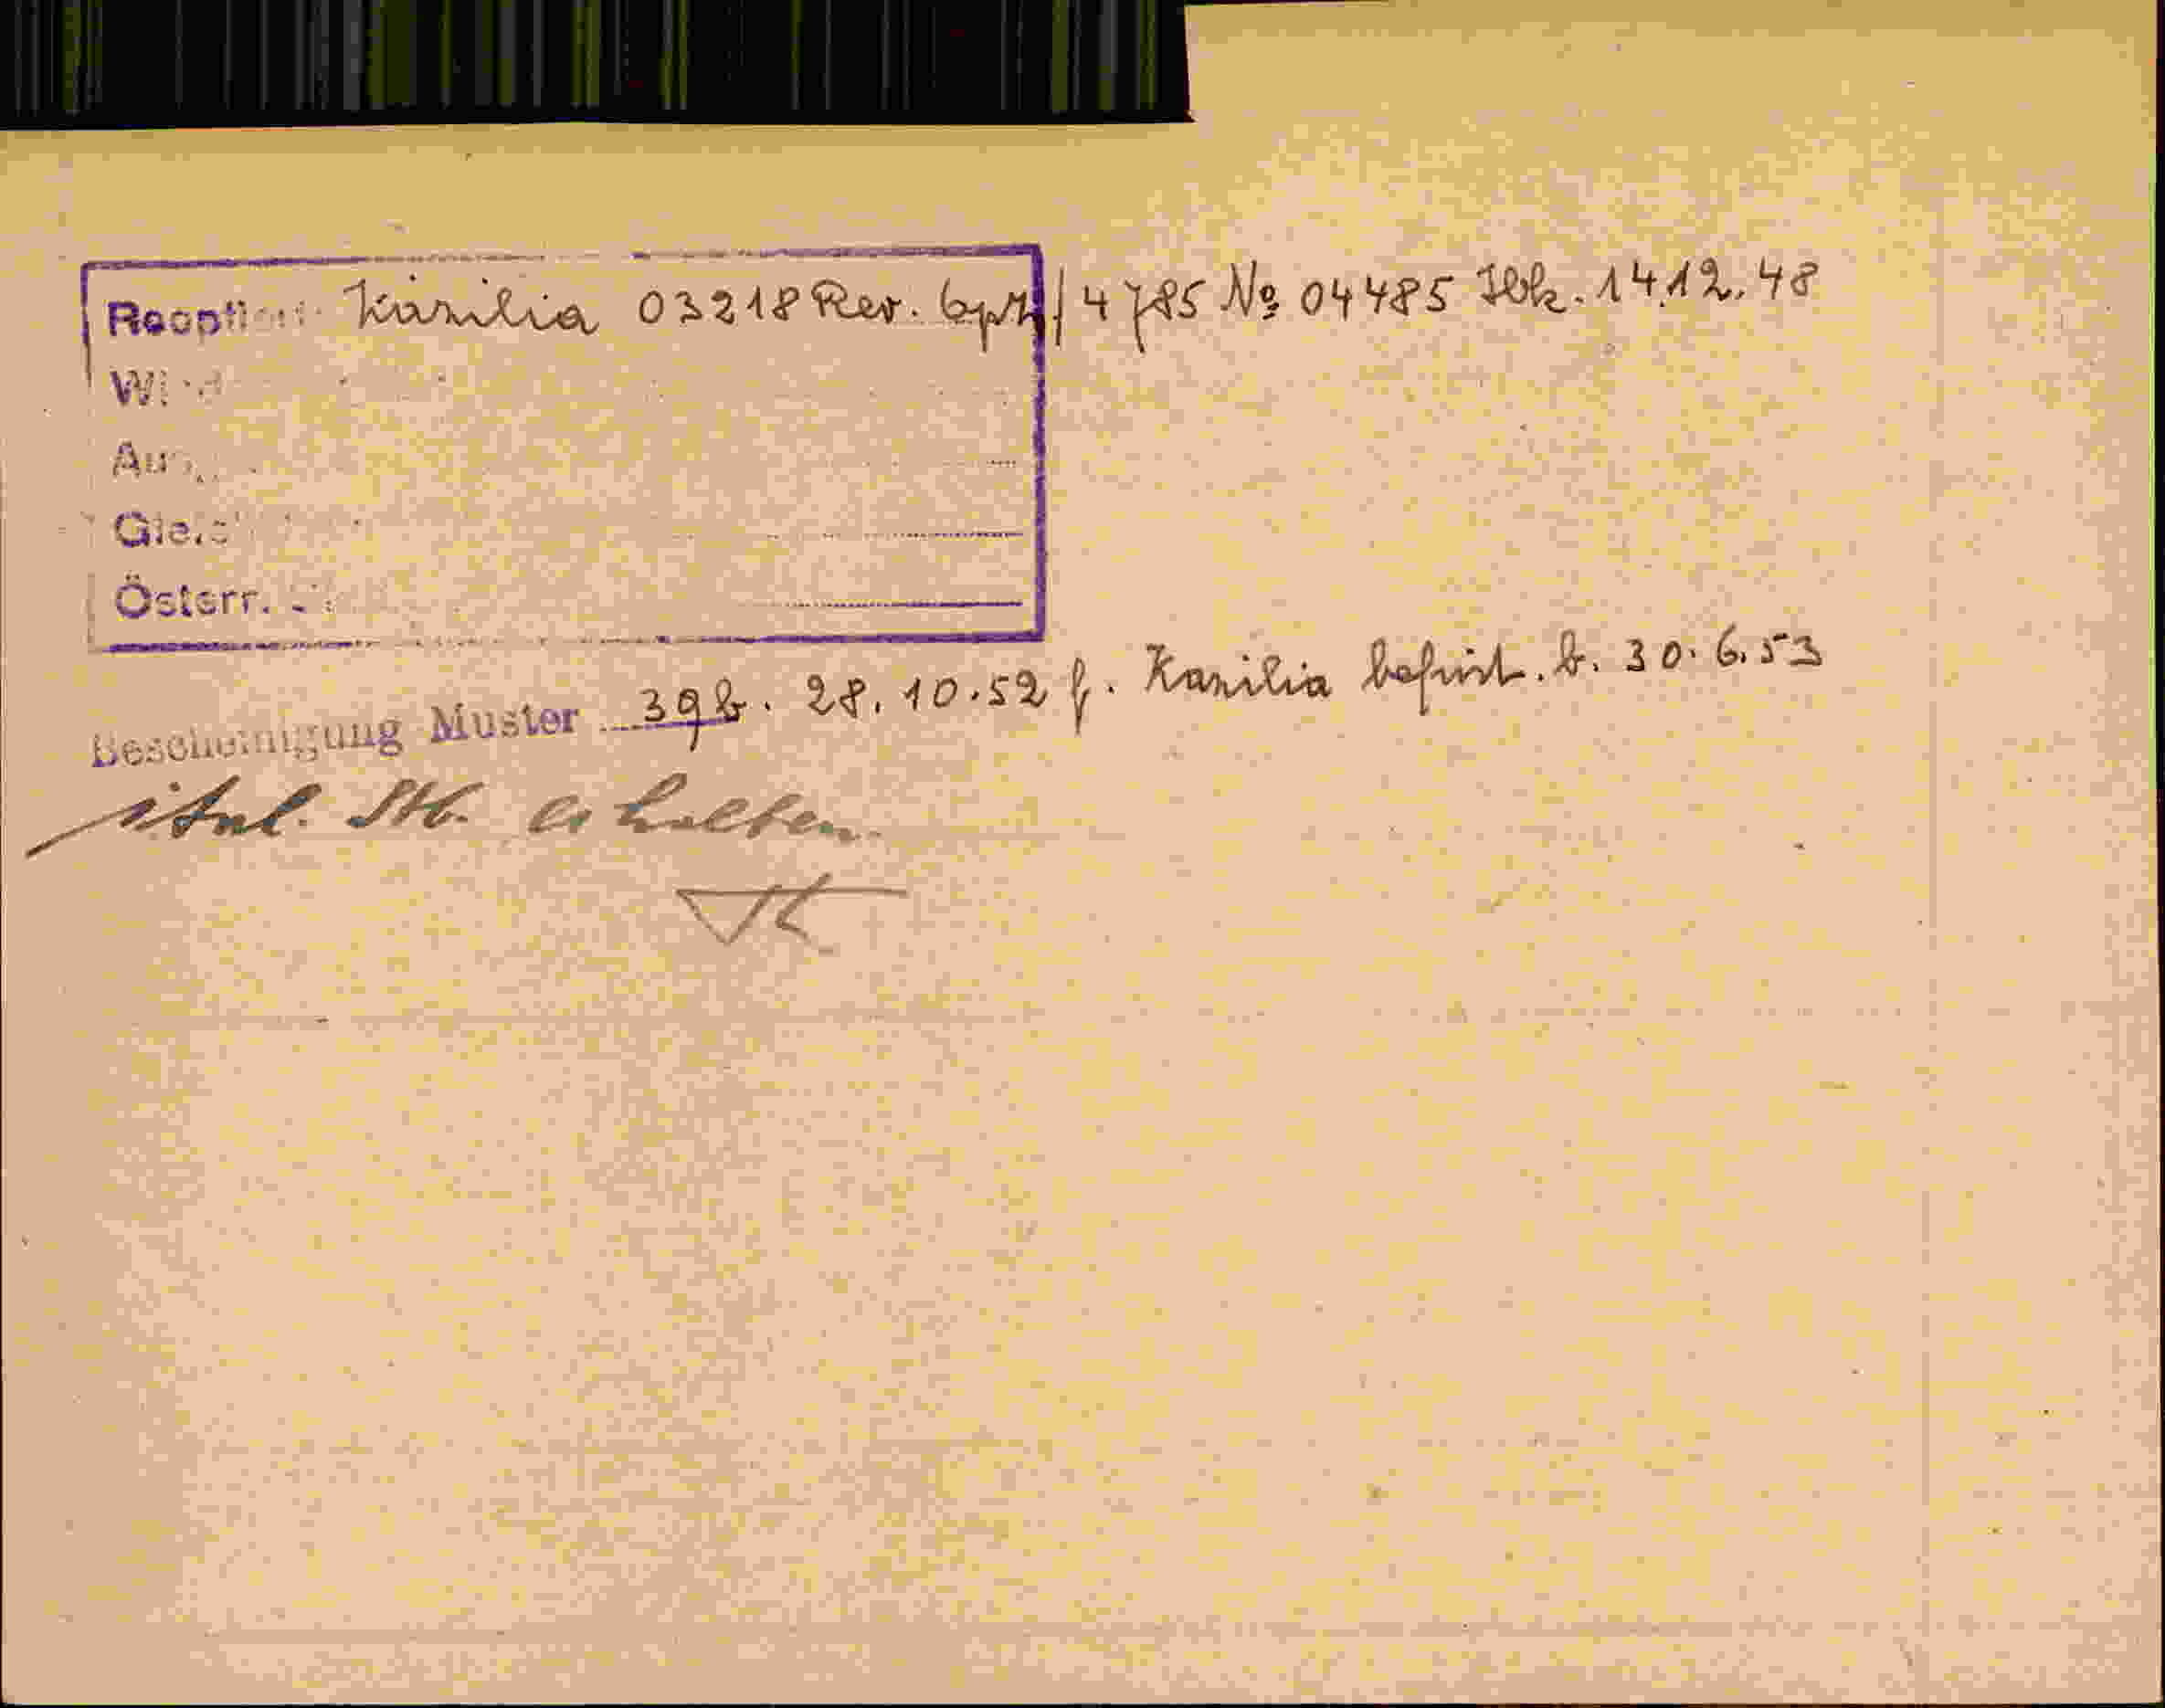 Reopti Kazilia 03218 Rev. 4785 No 04485 Ibk. 14.12.48
Österr.
Bescheinigung Muster 39b. 28.10.52 f. Kazilia befrist. b. 30.6.53
ital. Stb. erhalten.